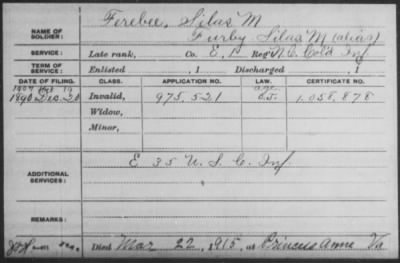 Ferebee, Silas M
NAME OF SOLDIER: Furby Silas M (alias)
SERVICE: Late rank, Co. E, 1 Reg't N.C. Col'd Inf
TERM OF SERVICE: Enlisted , 1 Discharged , 1
DATE OF FILING. CLASS. APPLICATION NO. LAW. CERTIFICATE NO.
1890 Dec. 20 Invalid, 975,521 1.058,878
Widow,
Minor,
ADDITIONAL SERVICES: E 35 U.S.C. Inf
REMARKS:
Died Mar 22, 1915, at Princess Anne Va